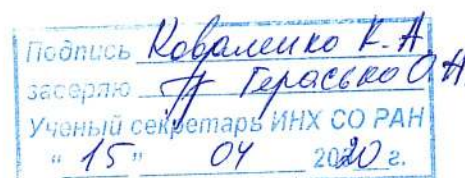 Подпись Коваленко К.А
заверяю Герасько О.А.
Ученый секретарь ИНХ СО РАН
"15" 04 2020 г.